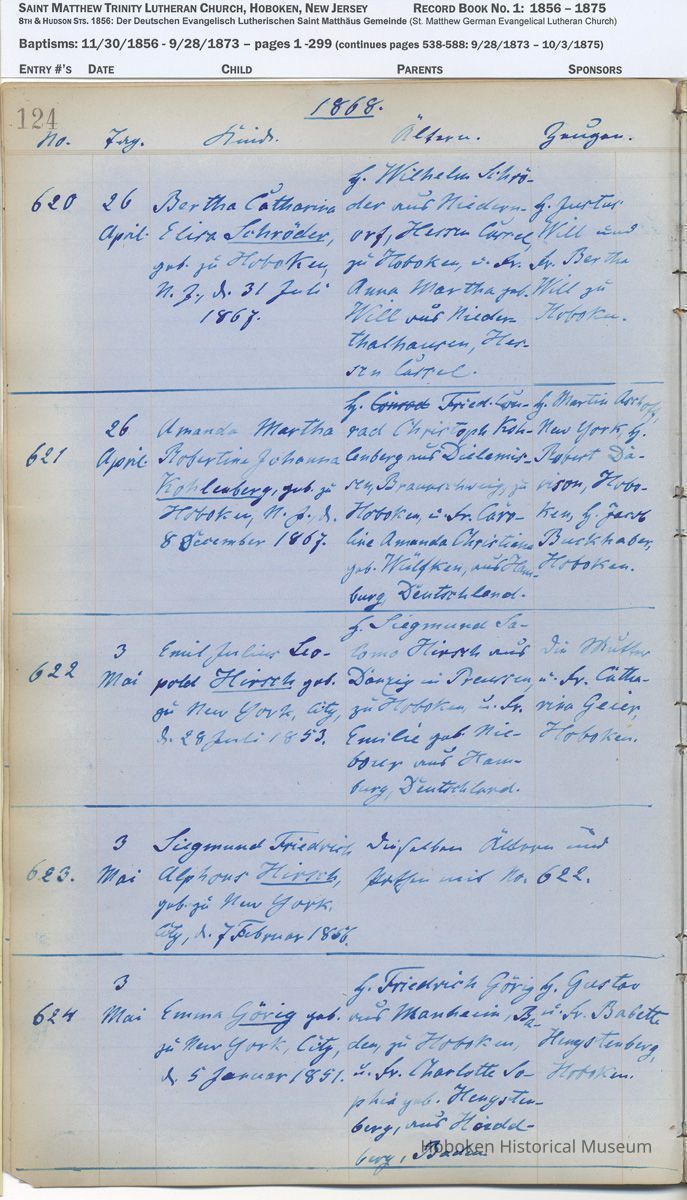 SAINT MATTHEW TRINITY LUTHERAN CHURCH, HOBOKEN, NEW JERSEY RECORD BOOK NO. 1: 1856 – 1875
8TH & HUDSON STS. 1856: Der Deutschen Evangelisch Lutherischen Saint Matthäus Gemeinde (St. Matthew German Evangelical Lutheran Church)
Baptisms: 11/30/1856 - 9/28/1873 – pages 1 -299 (continues pages 538-588: 9/28/1873 – 10/3/1875)
ENTRY #'S DATE CHILD PARENTS SPONSORS
124
1868.
No. Tag. Kind. Ältern. Zeugen.
620
26
April
Bertha Catharina
Elisa Schröder,
geb. zu Hoboken,
N. J., d. 31 Juli
1867.
H. Wilhelm Schrö-
der aus Niedern-
orf, Hessen Cassel,
zu Hoboken, u. Fr.
Anna Martha geb.
Will aus Nieder-
thalhausen, Hes-
sen Cassel.
H. Justus
Will und
Fr. Bertha
Will zu
Hoboken.
621
26
April
Amanda Martha
Robertine Johanna
Kohlenberg, geb. zu
Hoboken, N. J., d.
8 December 1867.
H. Conrad Fried. Con-
rad Christoph Koh-
lenberg aus
Braunschweig, zu
Hoboken, u. Fr. Caro-
line Amanda Christiana
geb. Wülfken, aus Ham-
burg, Deutschland.
H. Martin
New York, H.
Robert Da-
vison, Hobo-
ken, H. Jacob
Buckhaber,
Hoboken.
622
3
Mai
Emil Julius Leo-
pold Hirsch geb.
zu New York, City,
d. 28 Juli 1853.
H. Siegmund Sa-
lomo Hirsch aus
Danzig in Preussen,
zu Hoboken, u. Fr.
Emilie geb. Nie-
bour aus Ham-
burg, Deutschland.
Die Mutter
u. Fr. Catha-
rina Geier,
Hoboken.
623.
3
Mai
Siegmund Friedrich
Alphons Hirsch,
geb. zu New York
City, d. 7 Februar 1856.
Dieselben Ältern und
Pathen wie No. 622.
624
3
Mai
Emma Görig geb.
zu New York, City,
d. 5 Januar 1851.
H. Friedrich Görig
aus Manheim, Ba-
den, zu Hoboken,
u. Fr. Charlotte So-
phia geb. Hengsten-
berg, aus Heidel-
berg, Baden
H. Gustav
u. Fr. Babette
Hengstenberg,
Hoboken.
Hoboken Historical Museum